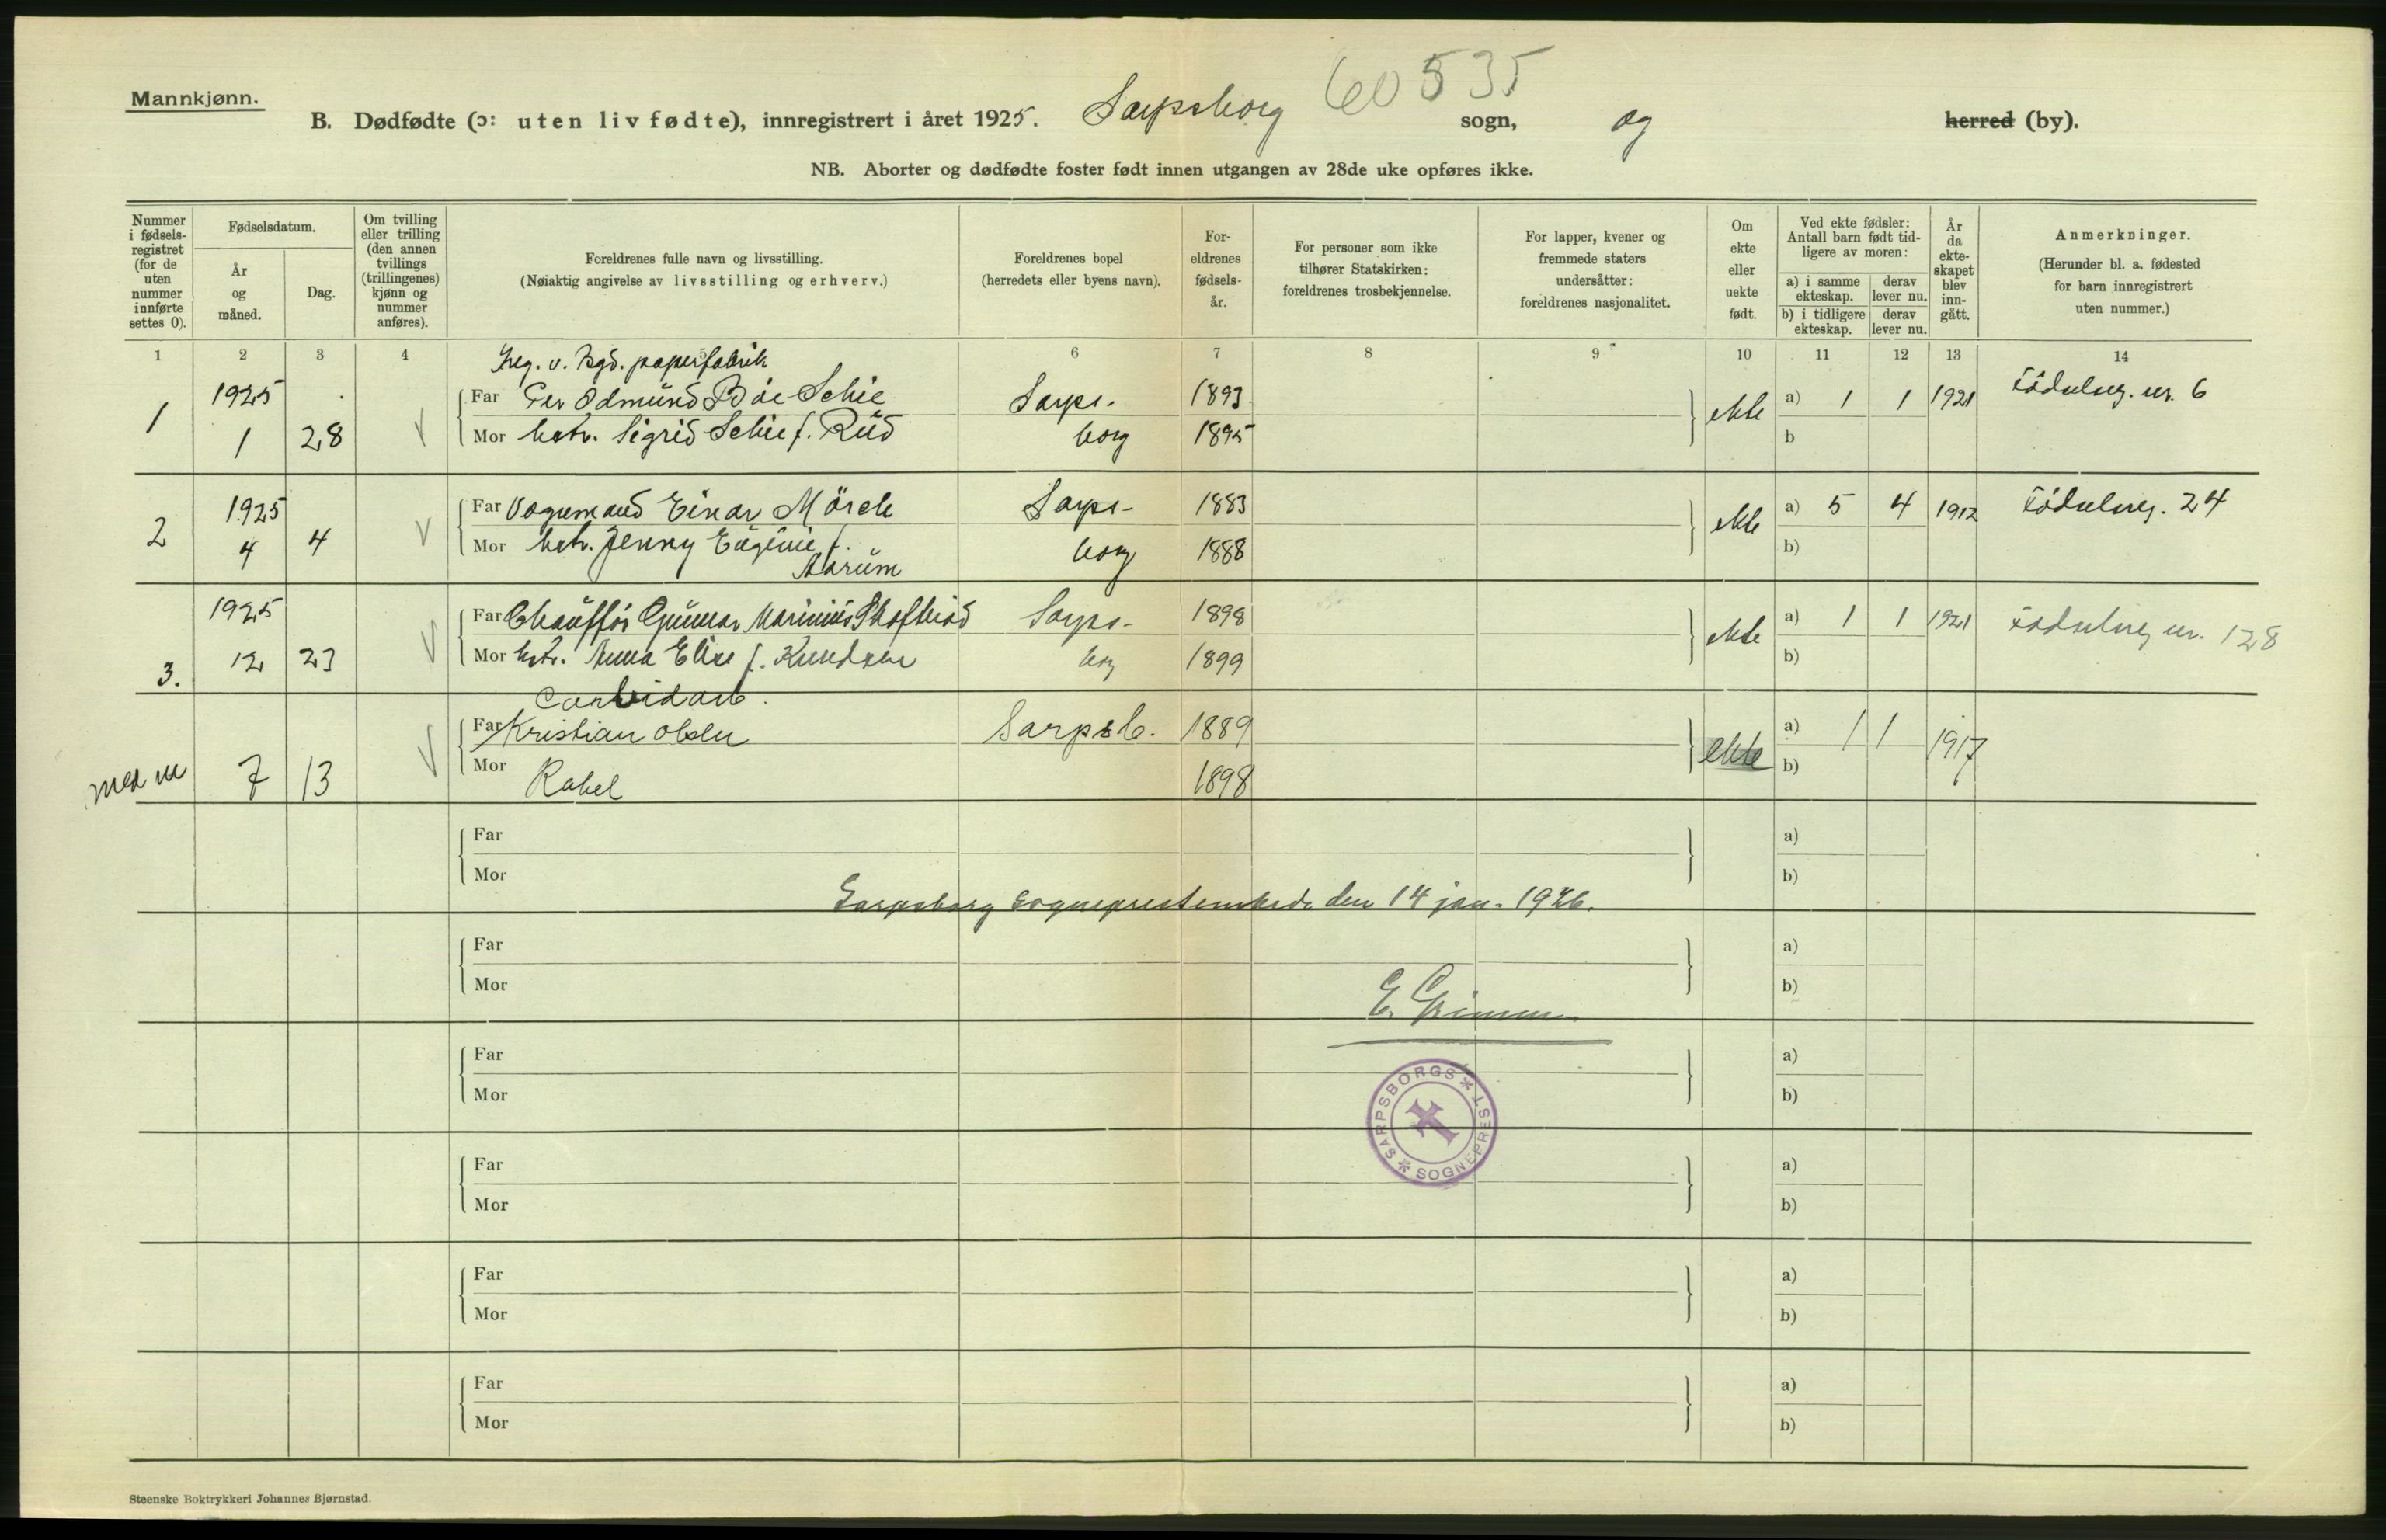 Mannkjønn.
60535
B. Dødfødte (ɔ: uten liv fødte), innregistrert i året 1925. Sarpsborg sogn, og herred (by).
NB. Aborter og dødfødte foster født innen utgangen av 28de uke opføres ikke.
Nummer i fødsels-registret (for de uten nummer innførte settes 0).
Fødselsdatum.
År og måned.
Dag.
Om tvilling eller trilling (den annen tvillings (trillingenes) kjønn og nummer anføres).
Foreldrenes fulle navn og livsstilling.
(Nøiaktig angivelse av livsstilling og erhverv.)
Foreldrenes bopel
(herredets eller byens navn).
For-eldrenes fødsels-år.
For personer som ikke tilhører Statskirken: foreldrenes trosbekjennelse.
For lapper, kvener og fremmede staters undersåtter: foreldrenes nasjonalitet.
Om ekte eller uekte født.
Ved ekte fødsler: Antall barn født tid-ligere av moren:
a) i samme ekteskap. derav lever nu.
b) i tidligere ekteskap. derav lever nu.
År da ekte-skapet blev inn-gått.
Anmerkninger.
(Herunder bl. a. fødested for barn innregistrert uten nummer.)
1 2 3 4 5 6 7 8 9 10 11 12 13 14
v. Bgd. paperfabrik
1 1925 Far Per Odmund Böe Schie Sarps- 1893 ekte a) 1 1 1921 Födselreg. nr. 6
1 28 Mor hstr. Sigrid Schie f. Rüd borg 1895 b
2 1925 Far Vognmand Einar Mörch Sarps- 1883 ekte a) 5 4 1912 Födselreg. 24
4 4 Mor hstr. Jenny Eugenie f. borg 1888 b)
Aarum
3. 1925 Far Chauffør Gunnar Marinius Sarps- 1898 ekte a) 1 1 1921 Födselreg nr. 128
12 23 Mor hstr. Anna Elise f. Knudsen borg 1899 b)
Carbidarb.
Far Kristian Olsen Sarpsb. 1889 ekte a) 1 1 1917
7 13 Mor Rakel 1898 b)
Far a)
Mor b)
Sarpsborg sogneprestembede den 14 jan. 1926.
Far a)
Mor b)
E. Grimm
Far a)
Mor b)
SARPSBORGS * SOGNEPREST *
Far a)
Mor b)
Far a)
Mor b)
Far a)
Mor b)
Steenske Boktrykkeri Johannes Bjørnstad.